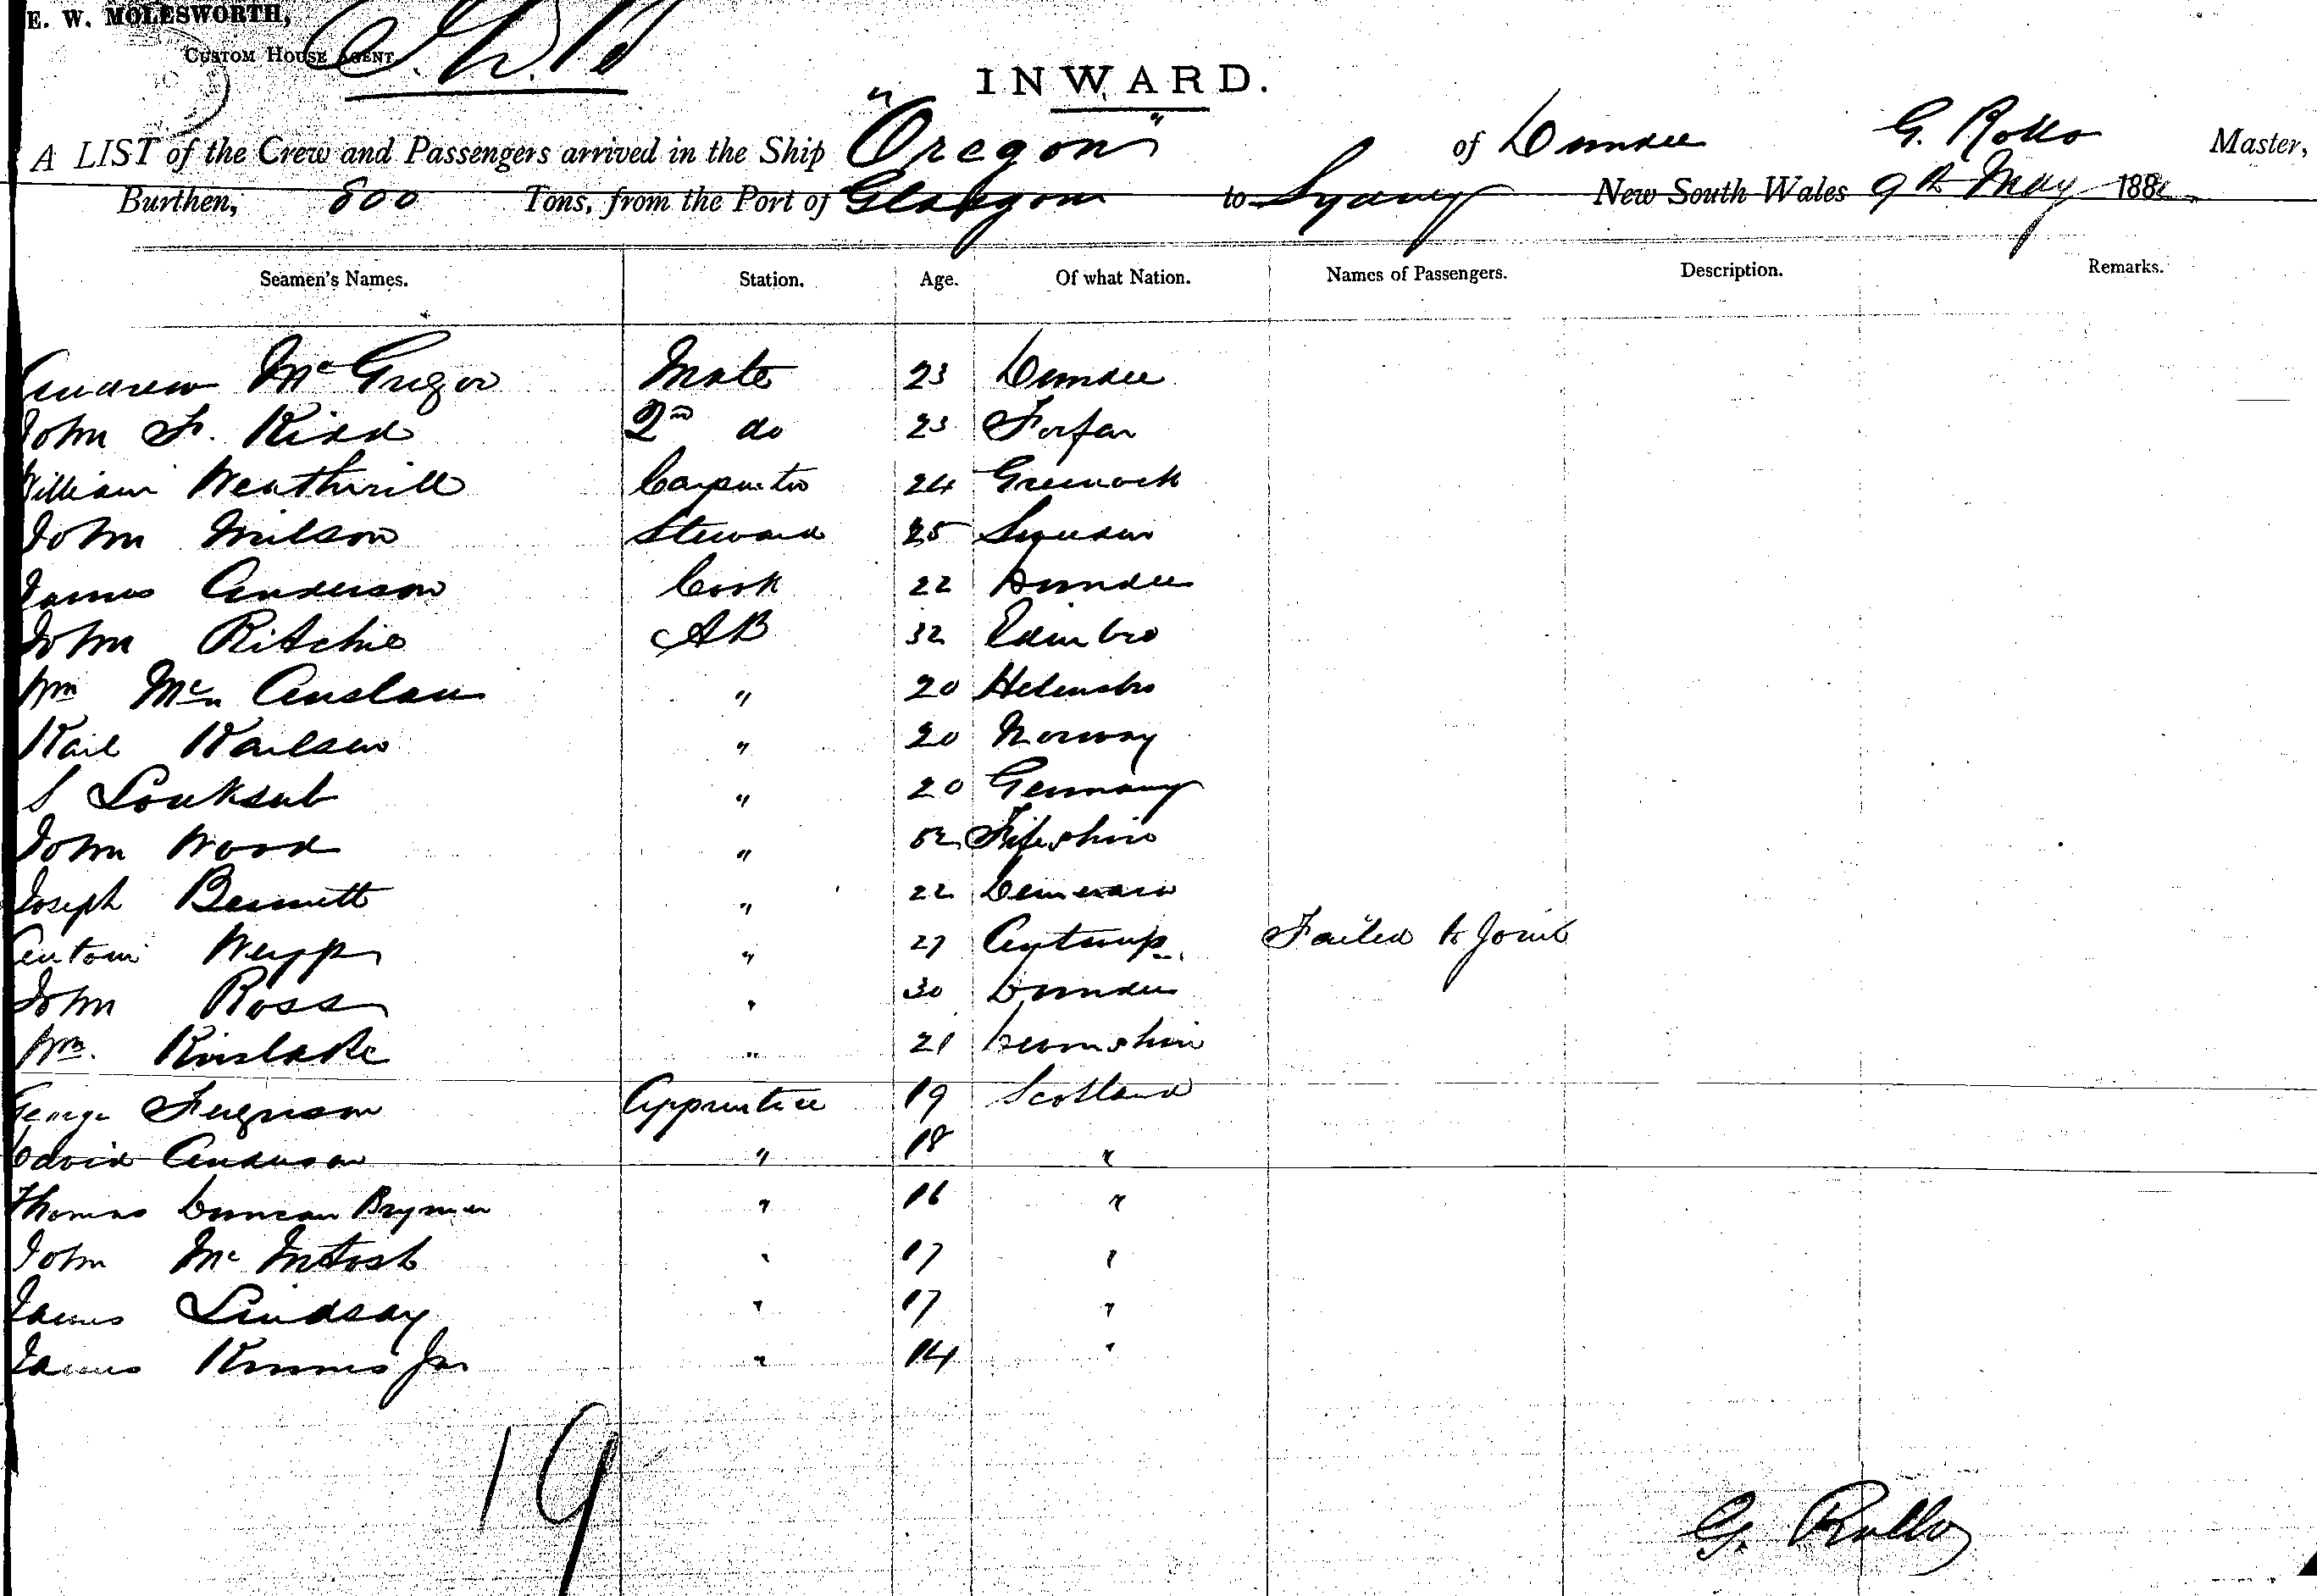 E. W. MOLESWORTH,
CUSTOM HOUSE AGENT
INWARD.
A LIST of the Crew and Passengers arrived in the Ship "Oregon" of Dundee G. Rollo Master,
Burthen, 800 Tons, from the Port of Glasgow to Sydney New South Wales 9th May 188
Seamen's Names. Station. Age. Of what Nation. Names of Passengers. Description. Remarks.
Andrew McGregor Mate 23 Dundee
John F. Kidd 2nd do 23 Forfar
William Weathrill Carpenter 24 Greenock
John Milson Steward 25 Sweden
James Anderson Cook 22 Dundee
John Ritchie AB 32 Edinbro
Wm Mc Auslan " 20 Helensbro
Karl Karlsen " 20 Norway
S " 20 Germany
John Wood " 52 Fifeshire
Joseph Bennett " 22 Demerara
Antoni " 27 Antwerp Failed to Join
John Ross " 30 Dundee
Wm. Kinslake " 21 Devonshire
George Ferguson Apprentice 19 Scotland
David Anderson " 18 "
Thomas Duncan Brymer " 16 "
John McIntosh " 17 "
James Lindsay " 17 "
James Kinnes Jnr " 14 "
19
G. Rollo